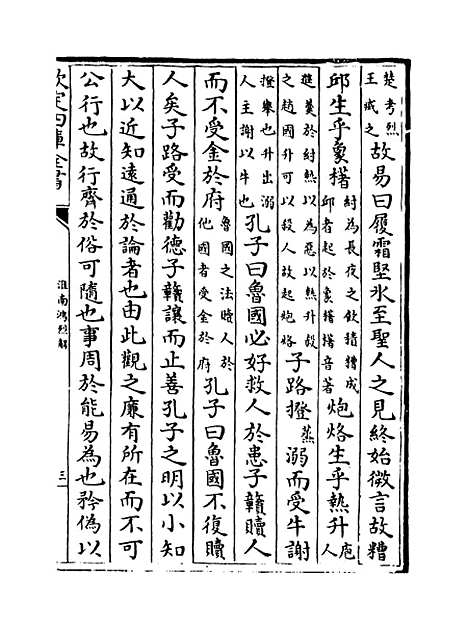 楚考烈王戓之故易曰履霜堅氷至聖人之見終始微言故糟
邱生乎象櫡紂為長夜之飲積糟成邱者起於象櫡櫡音著炮烙生乎熱升庖人
進羹於紂熱以為惡以熱升殺之趙國升可以殺人故起炮烙子路撜蒸溺而受牛謝
撜舉也升出溺人主謝以牛也孔子曰魯國必好救人於患子贛贖人
而不受金於府魯國之法贖人於他國者受金於府孔子曰魯國不復贖
人矣子路受而勸德子贛讓而止善孔子之明以小知
大以近知遠通於論者也由此觀之廉有所在而不可
公行也故行齊於俗可隨也事周於能易為也矜偽以
欽定四庫全書
淮南鴻烈解
三